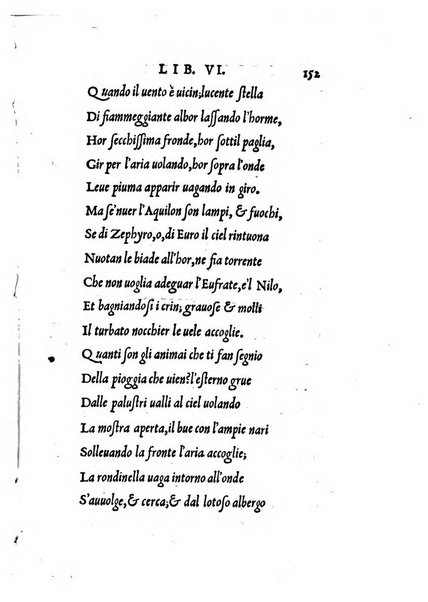 LIB. VI. 152
Quando il uento è uicin; lucente ſtella
Di fiammeggiante albor laſſando l'horme,
Hor ſecchiſſima fronde, hor ſottil paglia,
Gir per l'aria uolando, hor ſopra l'onde
Leue piuma apparir uagando in giro.
Ma ſe'nuer l'Aquilon ſon lampi, & fuochi,
Se di Zephyro, o, di Euro il ciel rintuona
Nuotan le biade all'hor, ne fia torrente
Che non uoglia adeguar l'Eufrate, e'l Nilo,
Et bagniandoſi i crin; grauoſe & molli
Il turbato nocchier le uele accoglie.
Quanti ſon gli animai che ti fan ſegnio
Della pioggia che uien? l'eſterno grue
Dalle paluſtri ualli al ciel uolando
La moſtra aperta, il bue con l'ampie nari
Solleuando la fronte l'aria accoglie;
La rondinella uaga intorno all'onde
S'auuolge, & cerca; & dal lotoſo albergo